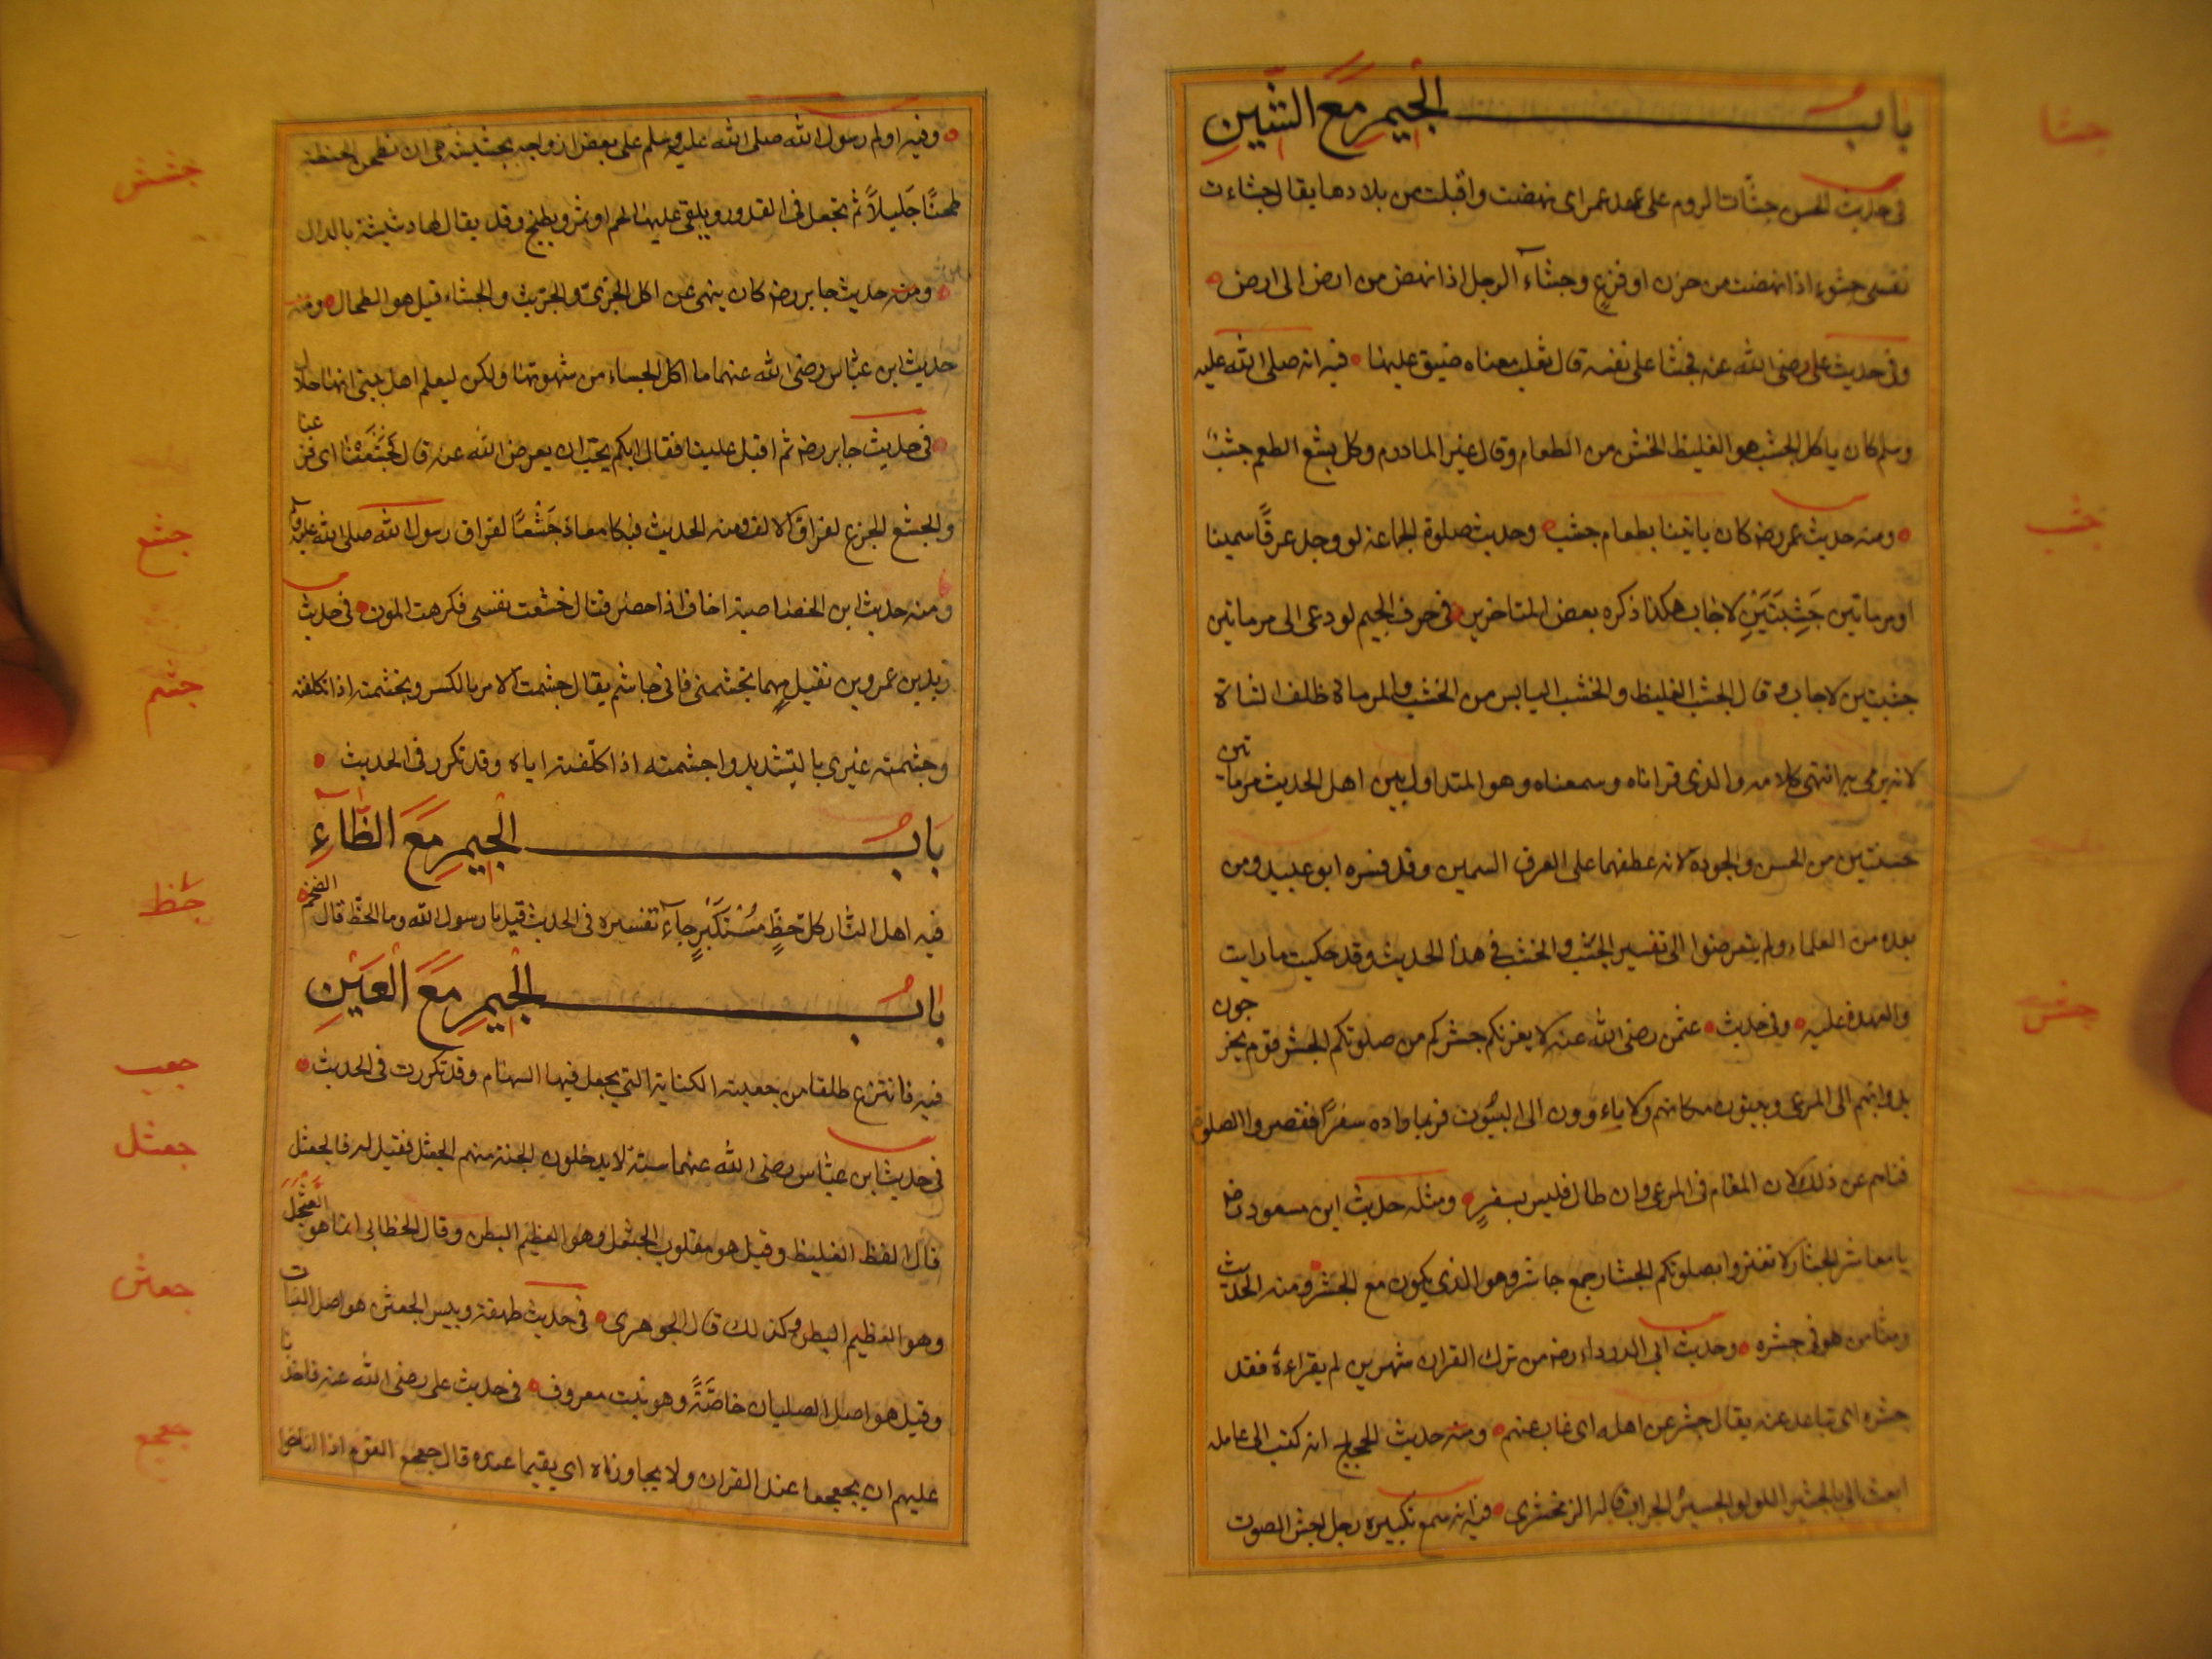 باب الجيم مع الشين
جشا
في حديث الحسن جشأت الروم على عهد عمر اى نهضت واقبلت من بلادها يقال جشاءت
نفسى جشوء اذا نهضت من حزن او فزع وجشاء الرجل اذا نهض من ارض الى ارض
وفى حديث على رضى الله عنه فجشا على نفسه قال ثعلب معناه ضيق عليها فيه انه صلى الله عليه
وسلم كان ياكل الجشب هو الغليظ الخشن من الطعام وقال غير المادوم وكل بشع الطعم جشب
جشب
ومنه حديث عمر رضه كان ياتينا بطعام جشب وحديث صلوة الجماعة لو وجد عرقا سمينا
او مرماتين جَشِبَتَيْنِ لاجاب هكذا ذكره بعض المتاخرين في حرف الجيم لو دعى الى مرماتين
جشبتين لاجاب وقال الجشب الغليظ والخشب اليابس من الخشب والمرماة ظلف الشاة
لانه يرمى به انتهى كلامه والذى قراناه وسمعناه وهو المتداول بين اهل الحديث مرماتين
حسنتين من الحسن والجودة لانه عطفهما على العرق السمين وقد فسره ابو عبيد ومن
بعده من العلماء ولم يتعرضوا الى تفسير الجشب والخشب في هذا الحديث وقد حكيت ما رايت
والعهدة عليه وفي حديث عثمن رضى الله عنه لا يغرنكم جشركم من صلوتكم الجشر قوم يخرجون
جشر
بدوابهم الى المرعى ويبيتون مكانهم ولا ياءوون الى البيوت فربما راوه سفرا فقصروا الصلوة
فنهاهم عن ذلك لان المقام فى المرعى وان طال فليس بسفر ومثله حديث ابن مسعود رضه
يا معاشر الجشار لا تغتروا بصلوتكم الجشار جمع جاشر وهو الذى يكون مع الجشر ومنه الحديث
ومنا من هو فى جشره وحديث ابي الدرداء رضه من ترك القران شهرين لم يقراءه فقد
جشره اى تباعد عنه يقال جشر عن اهله اى غاب عنهم ومنه حديث الحجاج انه كتب الى عامله
ابعث الي بالجشير اللولو الجشير الجراب قاله الزمخشرى فيه انه سمع تكبيرة رجل اجش الصوت
وفيه اولم رسول الله صلى الله عليه وسلم على بعض ازواجه بجشيشة هى ان تطحن الحنطة
جشش
طحنًا جَليلاً ثم تجعل فى القدور ويلقى عليها لحم او تمر ويطبخ وقد يقال لها دشيشة بالدال
ومنه حديث جابر رضه كان ينهى عن اكل الجرّىّ والجرّيث والجشاء قيل هو الطحال ومنه
حديث ابن عباس رضى الله عنهما ما اكل الجشاء من شهوتها ولكن ليعلم اهل بيتى انها حلال
فى حديث جابر رضه ثم اقبل علينا فقال ايكم يحب ان يعرض الله عنه قال فَجَشَعْنا اى فزعنا
والجشع الجزع لفراق الالف ومنه الحديث فبكا معاذ جَشَعًا لفراق رسول الله صلى الله عليه
جشع
ومنه حديث ابن الخصاصية اخاف اذا حضر قتال خشعت نفسى فكرهت الموت فى حديث
زيد بن عمرو بن نفيل مهما تجشمنى فانى جاشم يقال جشمت الامر بالكسر وتجشمته اذا تكلفته
جشم
وجشمته غيرى بالتشديد واجشمته اذا كلّفته اياه وقد تكرر فى الحديث
بَابُ الْجِيمِ مَعَ الظَّاءِ
فيه اهل النار كل جَظٍّ مُسْتَكْبِرٍ جآء تفسيره فى الحديث قيل يا رسول الله وما الجظّ قال الضخم
جَظ
بَابُ الْجِيمِ مَعَ الْعَيْنِ
فيه فانتزع طلقا من جعبته الكنانة التى يجعل فيها السهام وقد تكررت فى الحديث
جعب
فى حديث ابن عباس رضى الله عنهما ستة لا يدخلون الجنة منهم الجعثل فقيل له فما الجعثل
جعثل
قال الفظ الغليظ وقيل هو مقلوب الجثعل وهو العظيم البطن وقال الخطابى انما هو العَثْجَل
وهو العظيم البطن وكذلك قال الجوهرى فى حديث طهفة ويبس الجعثن هو اصل النبات
جعثن
وقيل هو اصل الصليان خاصَّةً وهو نبت معروف فى حديث على رضى الله عنه فاخذنا
عليهم ان يجعجعا عند القران ولا يجاوزاه اى يقيما عنده قال جعجع القوم اذا اناخوا
جعجع